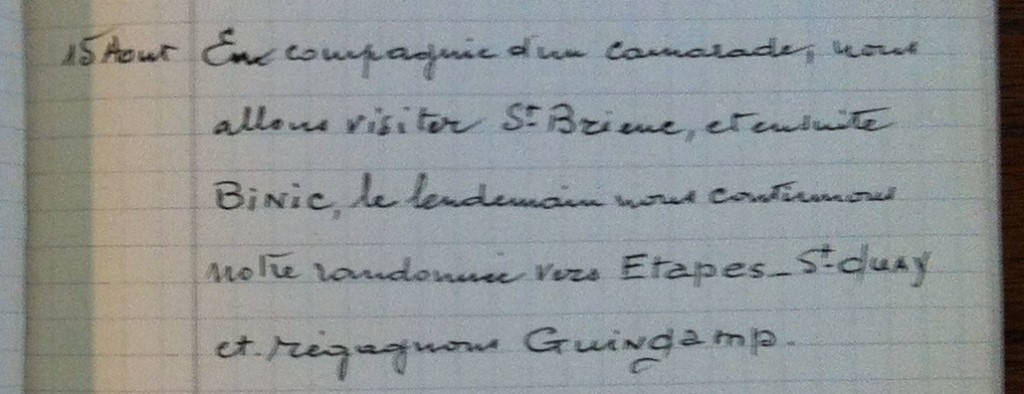 15 Aout En compagnie d'un camarade, nous
allons visiter St Brieuc, et ensuite
Binic, le lendemain nous continuons
notre randonnée vers Etapes - St-Quay
et regagnons Guingamp.